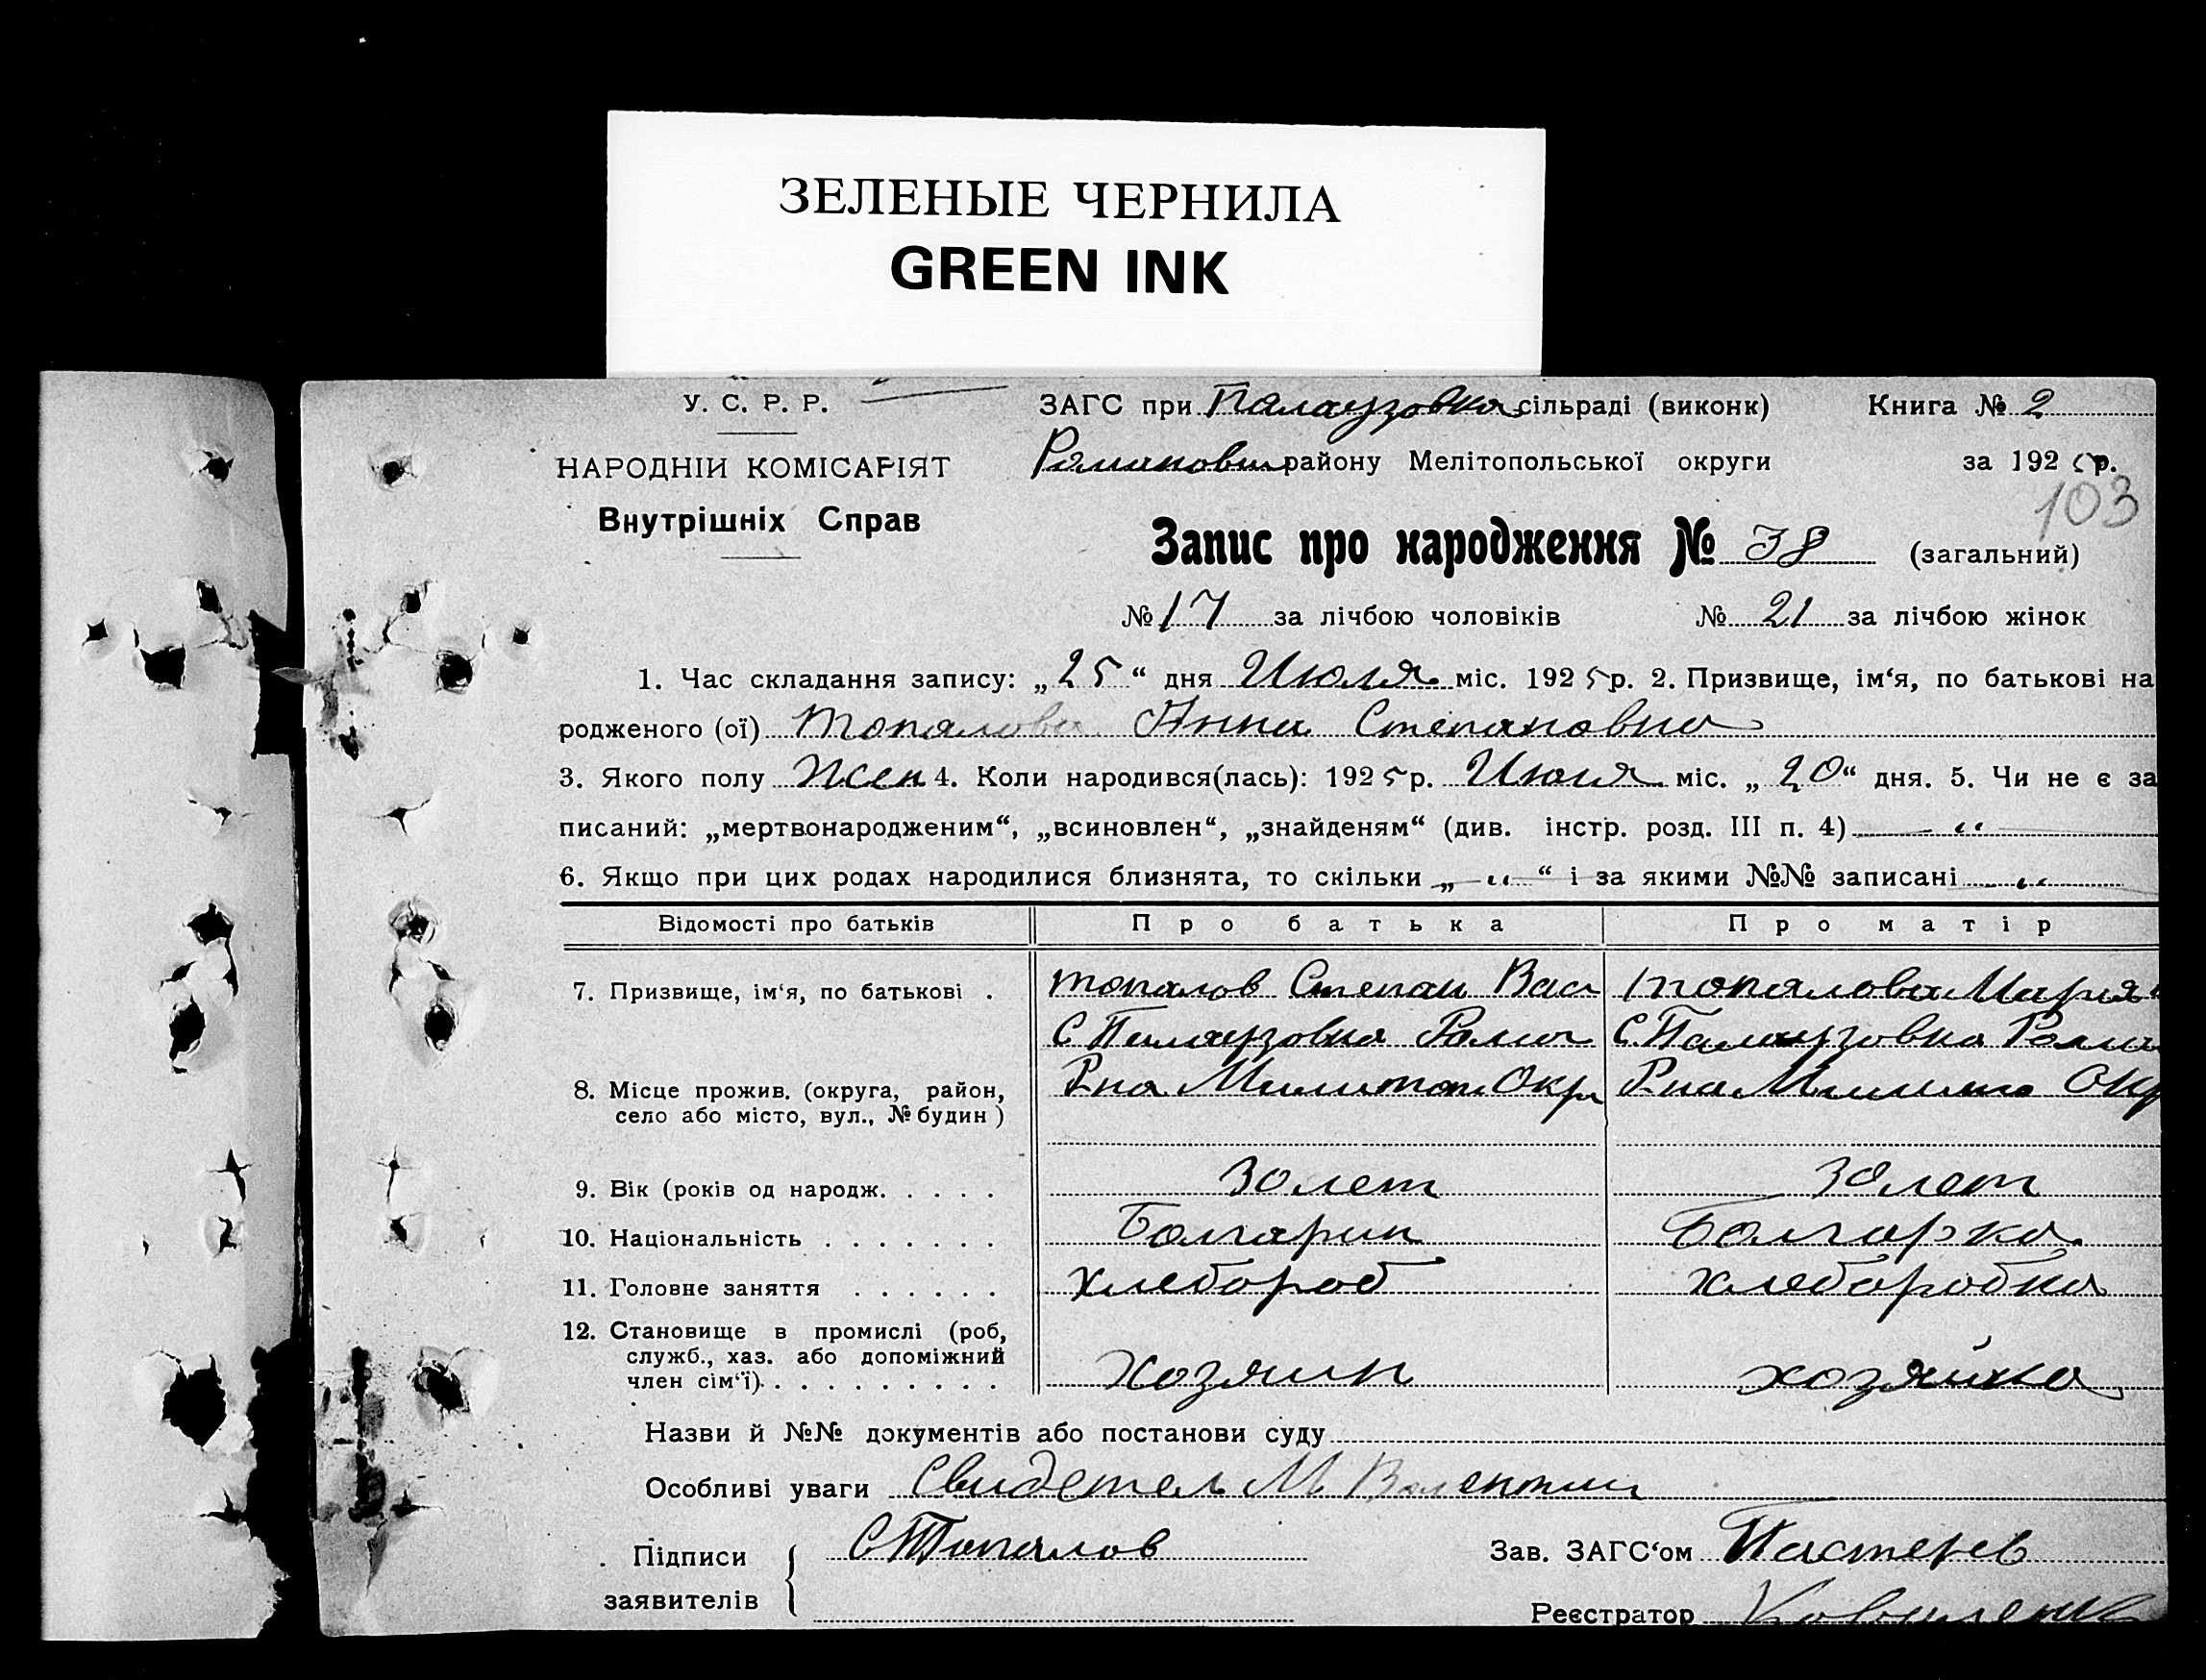 ЗЕЛЕНЫЕ ЧЕРНИЛА
GREEN INK
У. С. Р. Р.
НАРОДНІИ КОМІСАРІЯТ
Внутрішніх Справ
ЗАГС при Палаузовка сільраді (виконк) Книга № 2
Романовск району Мелітопольської округи за 1925 р.
103
Запис про народження № 38 (загальний)
№ 17 за лічбою чоловіків № 21 за лічбою жінок
1. Час складання запису: „25“ дня Июля міс. 1925 р. 2. Призвище, ім‘я, по батькові на
родженого (ої) Топалова Анна Степановна
3. Якого полу Жен 4. Коли народився(лась): 1925 р. Июля міс. „20“ дня. 5. Чи не є за
писаний: „мертвонародженим“, „всиновлен“, „знайденям“ (див. інстр. розд. III п. 4) — „ —
6. Якщо при цих родах народилися близнята, то скільки „— „ “ і за якими №№ записані „
Відомості про батьків Про батька Про матір
7. Призвище, ім‘я, по батькові . Топалов Степан Вас Топалова Мария
С Палаузовка Роман С. Палаузовка Роман
8. Місце прожив. (округа, район, Рна Милитоп Окр Рна Милито Окр
село або місто, вул., № будин )
9. Вік (років од народж. . . . . 30 лет 30 лет
10. Національність . . . . . . . Болгарин Болгарка
11. Головне заняття . . . . . . хлебороб хлеборобка
12. Становище в промислі (роб,
служб., хаз. або допоміжний
член сім‘ї) . . . . . . . . . . хозяин хозяйка
Назви й №№ документів або постанови суду
Особливі уваги Свидетел М Валентин
Підписи С Топалов Зав. ЗАГС‘ом Пастерев
заявителів
Реєстратор